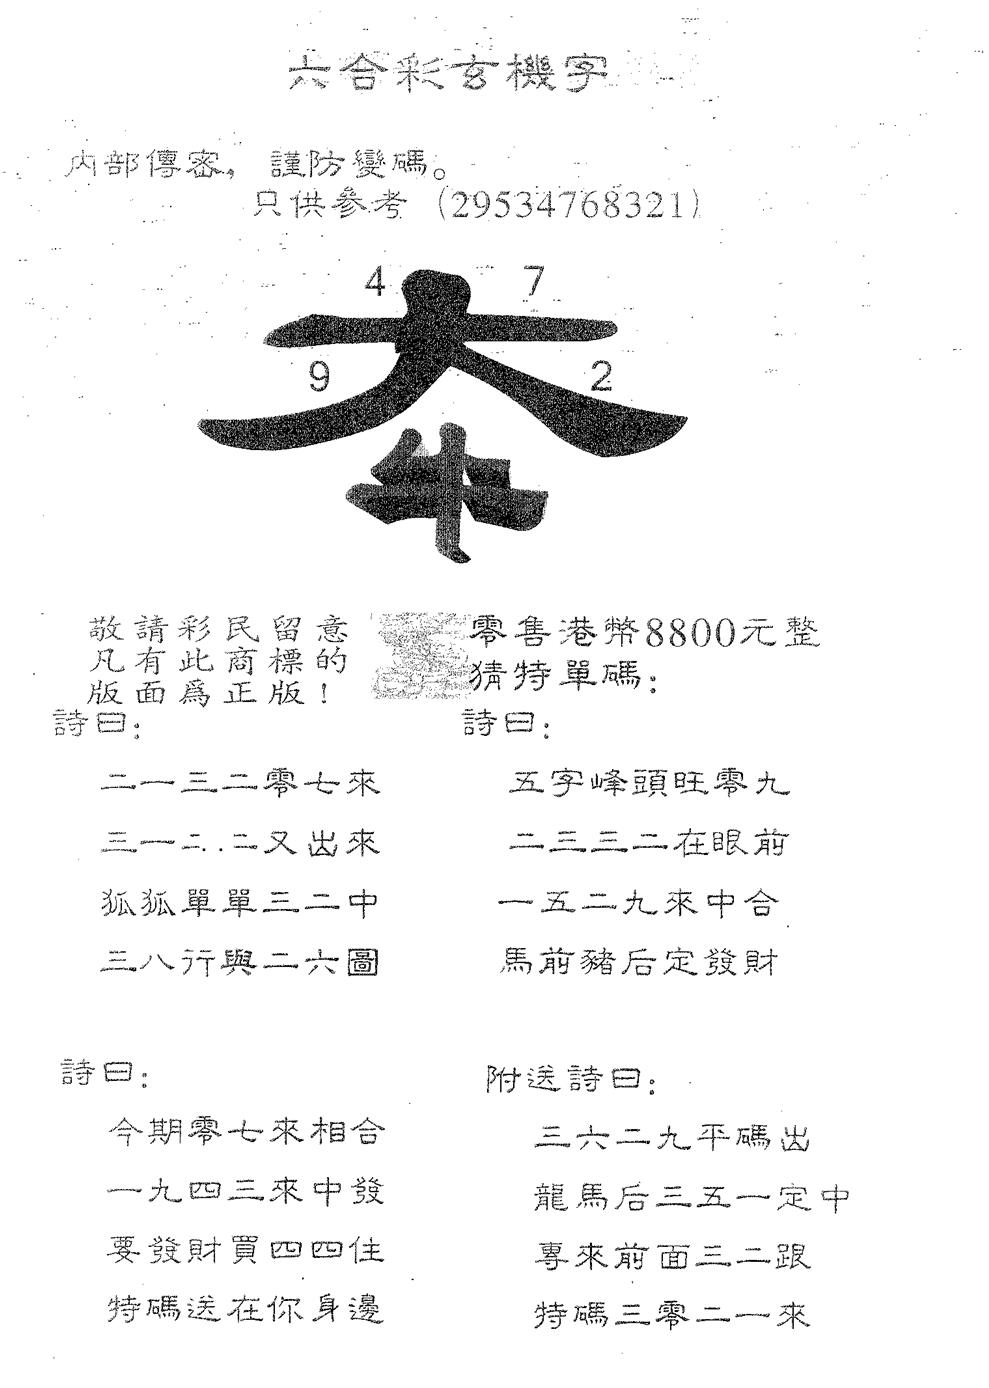 六合彩玄機字
內部傳密，謹防變碼。
只供參考（29534768321）
4 7
9 2
敬請彩民留意
凡有此商標的
版面爲正版！
零售港幣8800元整
猜特單碼：
詩曰：
二一三二零七來
三一二..二又出來
狐狐單單三二中
三八行與二六圖
詩曰：
五字峰頭旺零九
二三三二在眼前
一五二九來中合
馬前豬后定發財
詩曰：
今期零七來相合
一九四三來中發
要發財買四四住
特碼送在你身邊
附送詩曰：
三六二九平碼出
龍馬后三五一定中
專來前面三二跟
特碼三零二一來